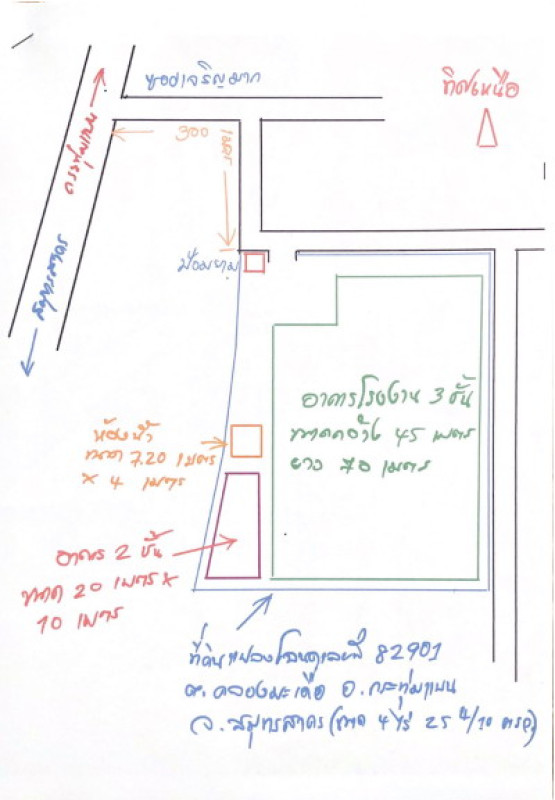 ซอยเจริญมาก
ทิศเหนือ
กระทุ่มแบน
300 เมตร
สมุทรสาคร
ป้อมยาม
อาคารโรงงาน 3 ชั้น
ขนาดกว้าง 45 เมตร
ยาว 70 เมตร
ห้องน้ำ
ขนาด 7.20 เมตร
x 4 เมตร
อาคาร 2 ชั้น
ขนาด 20 เมตร x
10 เมตร
ที่ดินแปลงโฉนดเลขที่ 82901
ต.คลองมะเดื่อ อ.กระทุ่มแบน
จ.สมุทรสาคร (ขนาด 4 ไร่ 25 4/10 ตรว)